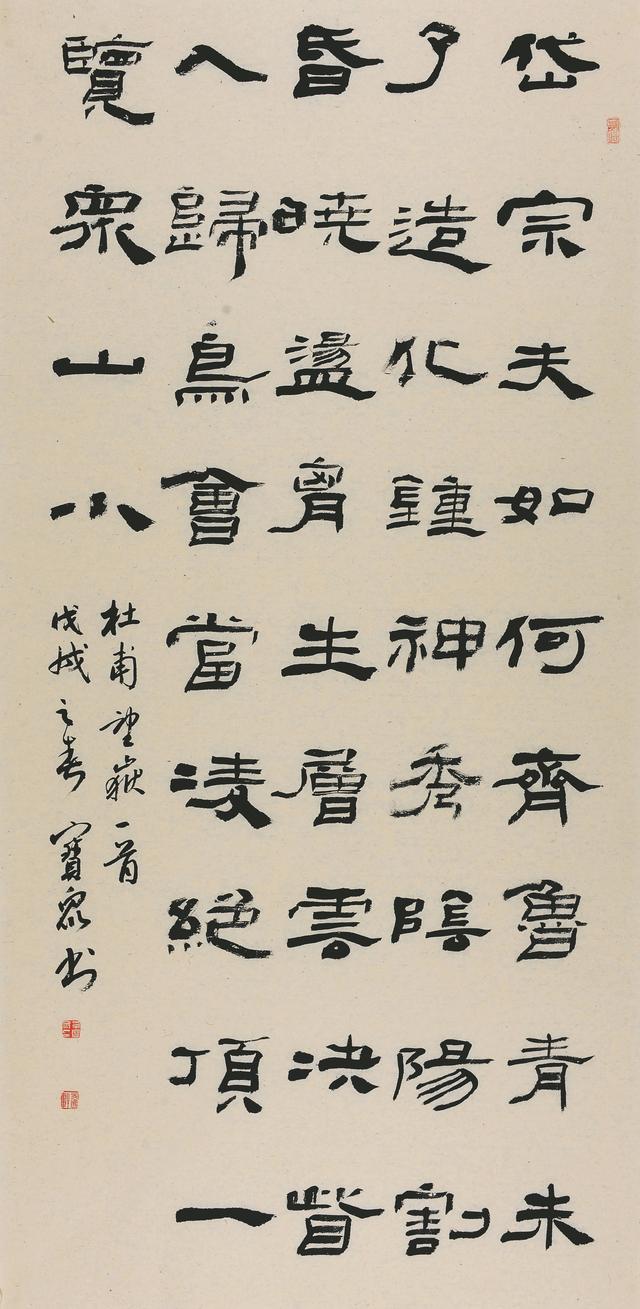 岱宗夫如何齊魯青未
了造化鍾神秀陰陽割
昏曉盪胷生層雲决眥
入歸鳥會當凌絕頂一
覽眾山小
杜甫望嶽一首
戊戌之春寶泉书